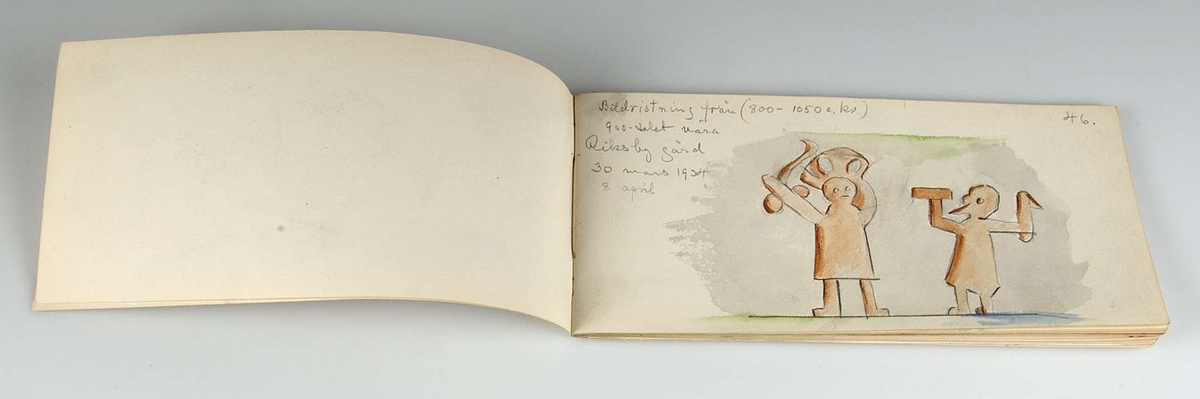 Bildristning från (800-1050 e. kr.)
46.
900-talet våra
Riksby gård
30 mars 1924
8 april